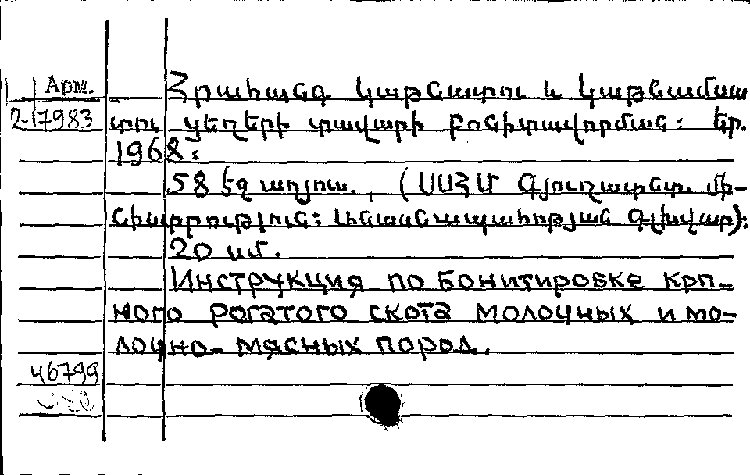 Арм.
2-17983
Հրահանգ կաթնատու և կաթնամսա
տու ցեղերի տավարի բոնիտավորման: Եր.
1968:
58 էջ աղյուս., (ՍՍՀՄ Գյուղատնտ. մի-
նիստրություն: Անասնապահության գլխվար):
20 սմ.
Инструкция по бонитировке крп-
ного рогатого скота молочных и мо-
лочно-мясных пород.
46799